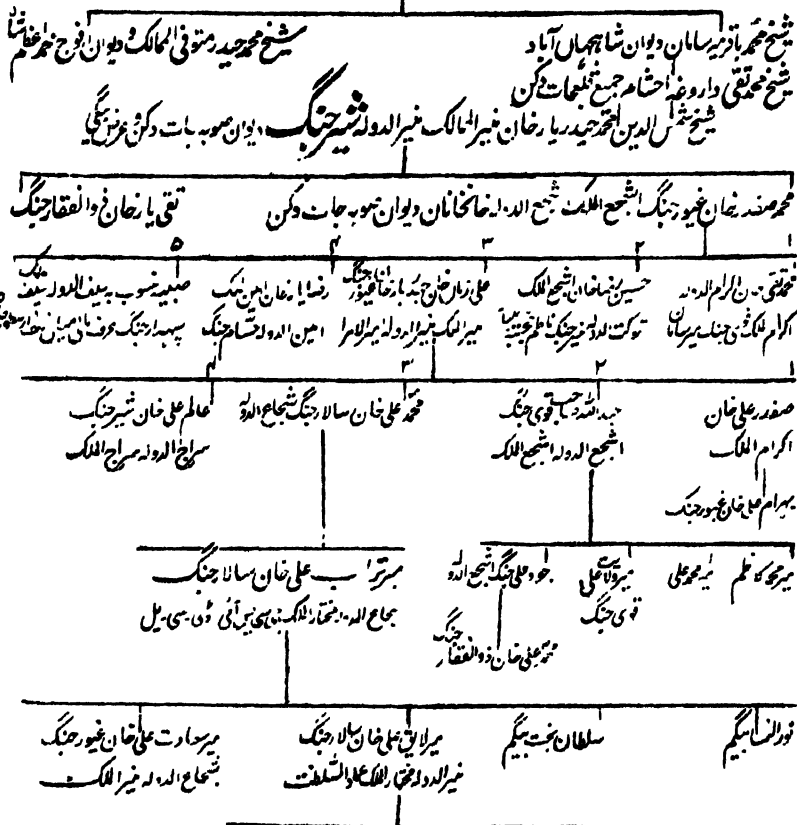 شیخ محمد باقر میر سامان دیوان شاہجہاں آباد
شیخ محمد حیدر متوفی الممالک و دیوان افوج محمد اعظم شاہ
شیخ محمد تقی داروغہ احشام جمیع قلعجات دکن
شیخ شمس الدین محمد حیدر یار خان منیر الممالک منیر الدولہ شیر جنگ دیوان صوبہ جات دکن و عرض بیگی
محمد صفدر خان غیور جنگ اشجع الملک شجیع الدولہ خانخانان دیوان صوبہ جات دکن
تقی یار خان ذوالفقار جنگ
۱
محمد تقی خان اکرام الدولہ
اکرام الملک قوی جنگ میر سامان
۲
حسین رضا خان اشجع الملک
شوکت الدولہ شیر جنگ ناظم
۳
علی زمان خان حیدر یار خان غیور جنگ
منیر الملک منیر الدولہ امیر الامرا
۴
رضا یار خان امین ملک
امین الدولہ حشام جنگ
۵
صبیہ منسوب بہ سیف الدولہ سیف الملک
سپہدار جنگ عرف مالی میان خلف
۱
صفدر علی خان
اکرام الملک
بہرام علی خان غیور جنگ
۲
عبد اللہ صاحب قوی جنگ
اشجع الدولہ اشجع الملک
۳
محمد علی خان سالار جنگ شجاع الدولہ
۴
عالم علی خان شیر جنگ
سراج الدولہ سراج الملک
میر محمد کاظم
میر محمد علی
میر ولایت علی
قوی جنگ
جواد علی جنگ اشجع الدولہ
محمد علی خان ذوالفقار جنگ
میر تراب علی خان سالار جنگ
شجاع الدولہ مختار الملک جی سی یس آئی ڈی۔سی۔یل
نور النسا بیگم
سلطان بخت بیگم
میر لایق علی خان سالار جنگ
منیر الدولہ مختار الملک عماد السلطنت
میر سعادت علی خان غیور جنگ
شجاع الدولہ منیر الملک